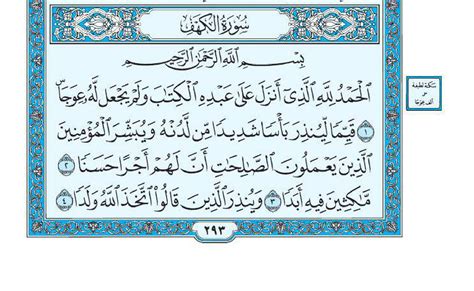 سُورَةُ الْكَهْفِ
بِسْمِ اللَّهِ الرَّحْمَٰنِ الرَّحِيمِ
الْحَمْدُ لِلَّهِ الَّذِي أَنْزَلَ عَلَىٰ عَبْدِهِ الْكِتَابَ وَلَمْ يَجْعَلْ لَهُ عِوَجًا
١ قَيِّمًا لِيُنْذِرَ بَأْسًا شَدِيدًا مِنْ لَدُنْهُ وَيُبَشِّرَ الْمُؤْمِنِينَ
الَّذِينَ يَعْمَلُونَ الصَّالِحَاتِ أَنَّ لَهُمْ أَجْرًا حَسَنًا ٢
مَاكِثِينَ فِيهِ أَبَدًا ٣ وَيُنْذِرَ الَّذِينَ قَالُوا اتَّخَذَ اللَّهُ وَلَدًا ٤
٢٩٣
سكتة لطيفة